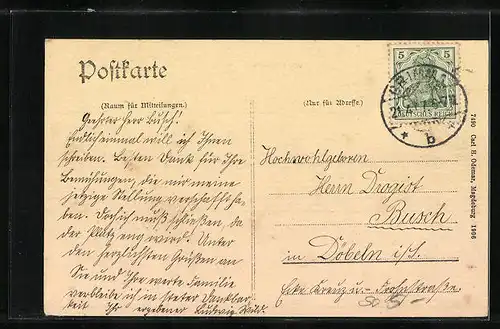 Postkarte
(Raum für Mitteilungen.)
(Nur für Adresse.)
Geehrter Herr Busch!
Endlich einmal will ich Ihnen
schreiben. Besten Dank für Ihre
Bemühungen, die mir meine
jetzige Stellung verschafft
haben. Doch ich muß schließen, da
der Platz eng wird. Unter
den herzlichsten Grüßen an
Sie und Ihre werte Familie
verbleibe ich in steter Dankbar-
keit Ihr ergebener Ludwig
5 5
DEUTSCHES REICH
* b *
Hochwohlgeboren
Herrn Drogist
Busch
in Döbeln i/S.
Ecke Kreuz u.- Frohnstraße.
7490 Carl H. Odemar, Magdeburg 1906